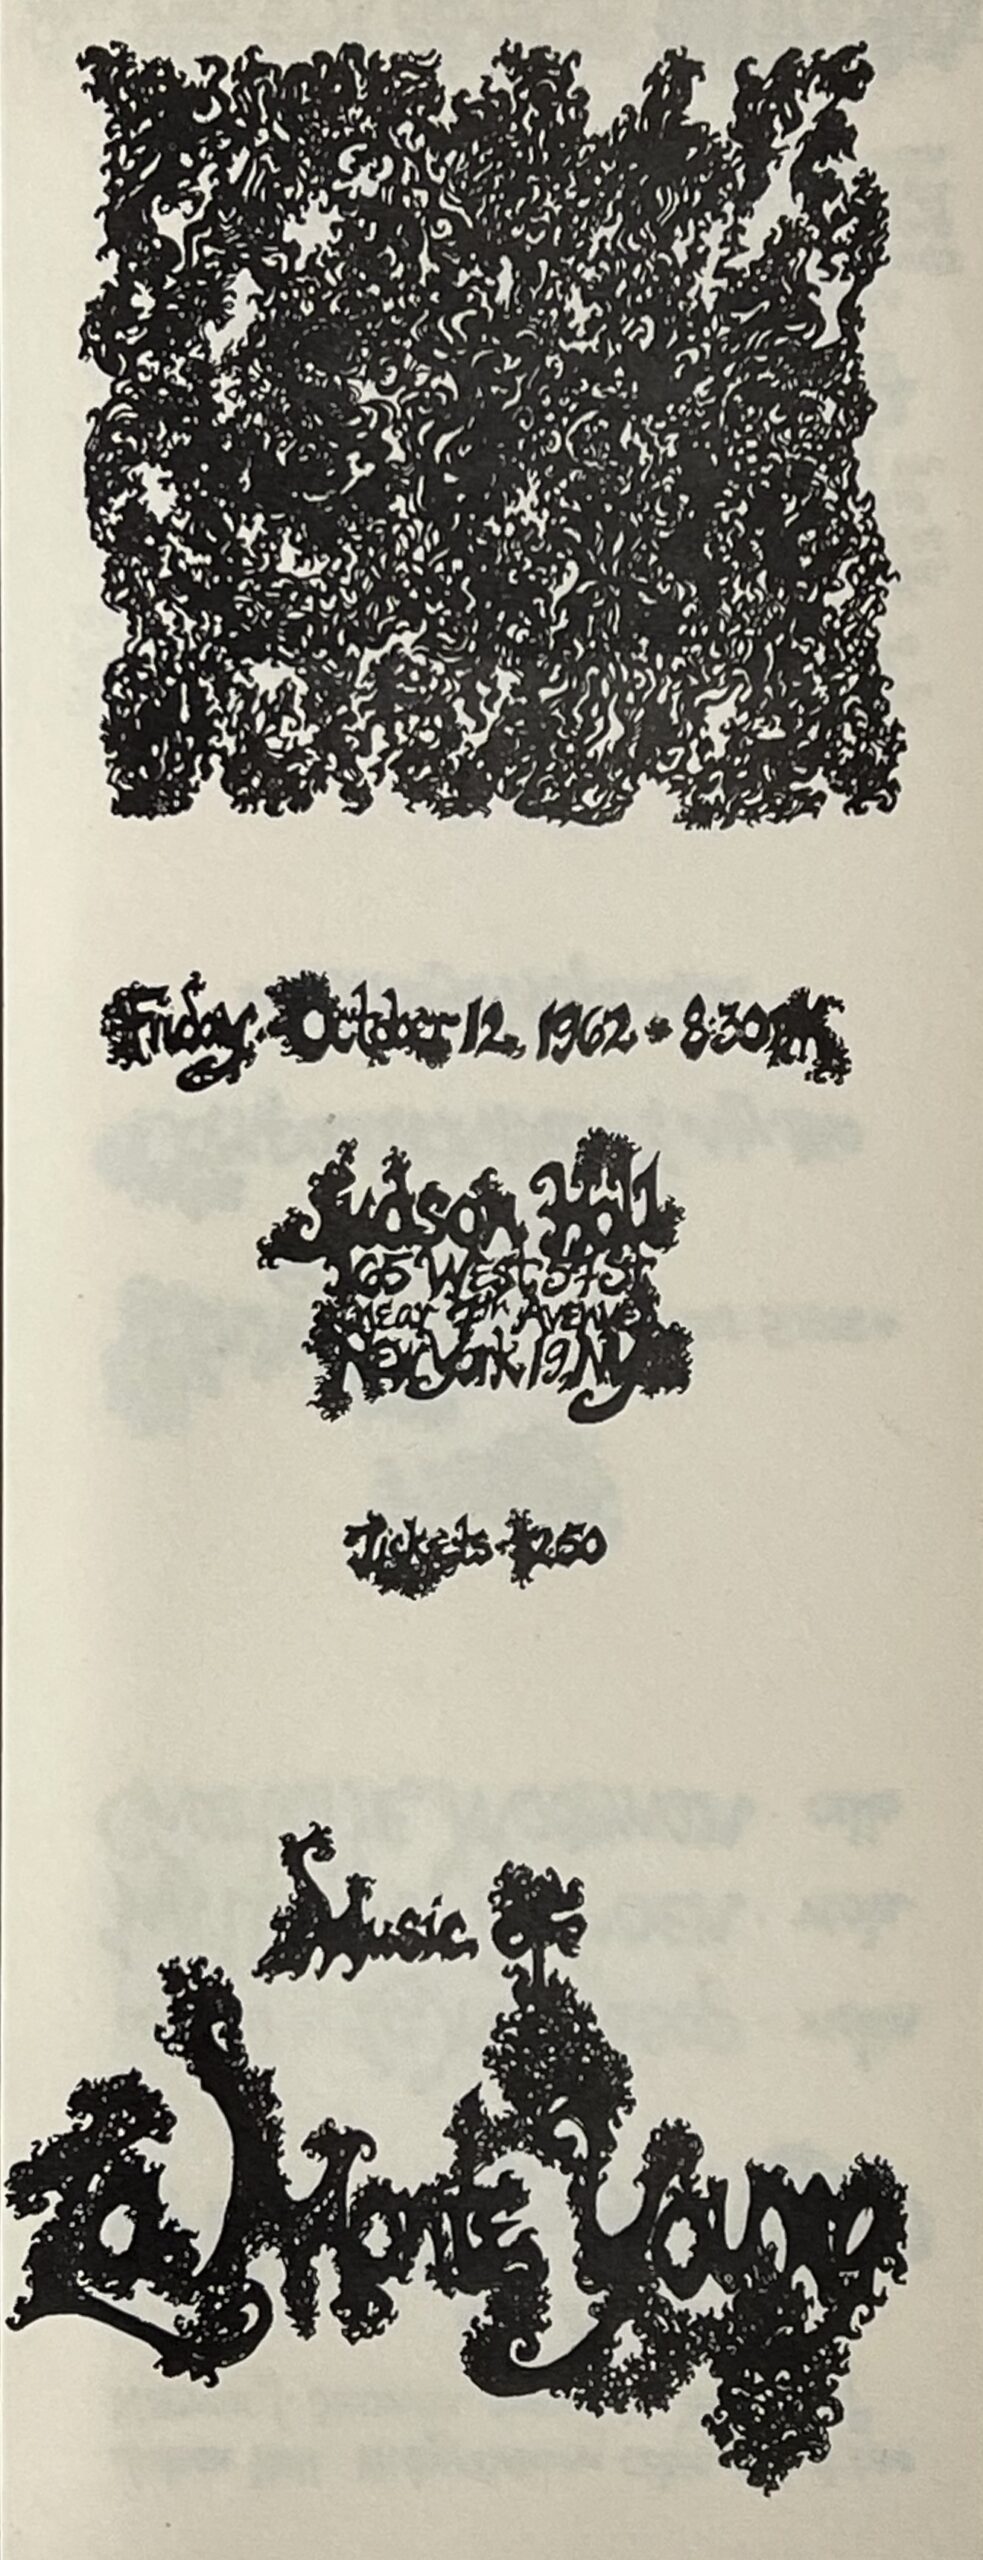 Friday, October 12, 1962 • 8:30PM
Judson Hall
165 West 57 St
near 7th Avenue
New York 19, NY
Tickets • $2.50
Music of
La Monte Young